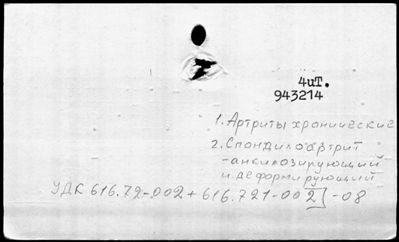 4иТ.
943214
1. Артриты хронические
2. Спондилоартрит
-анкилозирующий
и деформирующий
УДК 616.72-002+616.721-002]-08